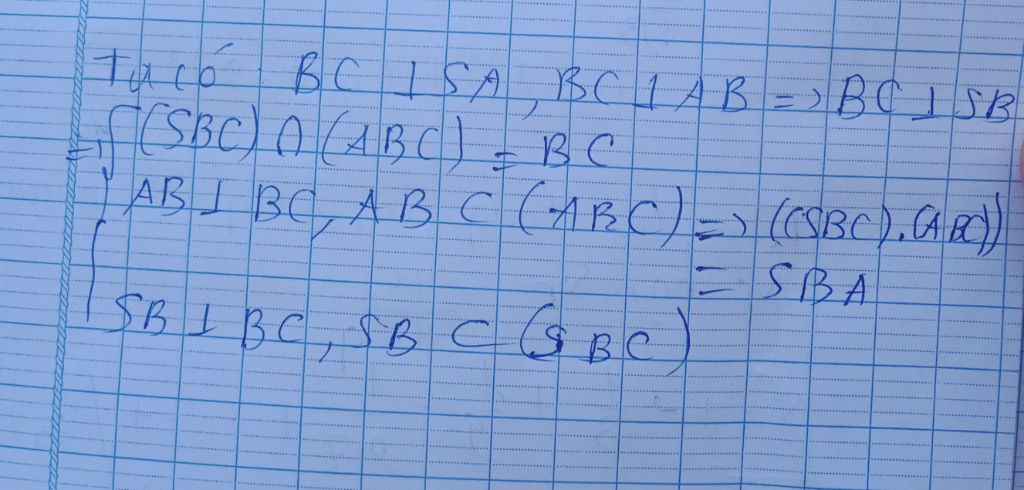 Ta có: BC ⊥ SA, BC ⊥ AB => BC ⊥ SB
=> { (SBC) ∩ (ABC) = BC
AB ⊥ BC, AB ⊂ (ABC) => ((SBC),(ABC))
= SBA
SB ⊥ BC, SB ⊂ (SBC)